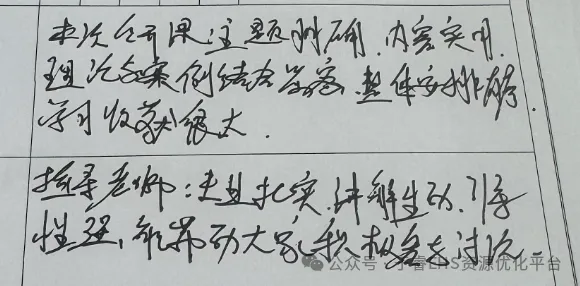 本次公开课主题明确、内容实用、
理论与案例结合紧密、整体安排有序、
学习收获很大.
指导老师:专业扎实、讲解生动、引导
性强,能带动大家积极参与讨论.
公众号·小睿EHS资源优化平台